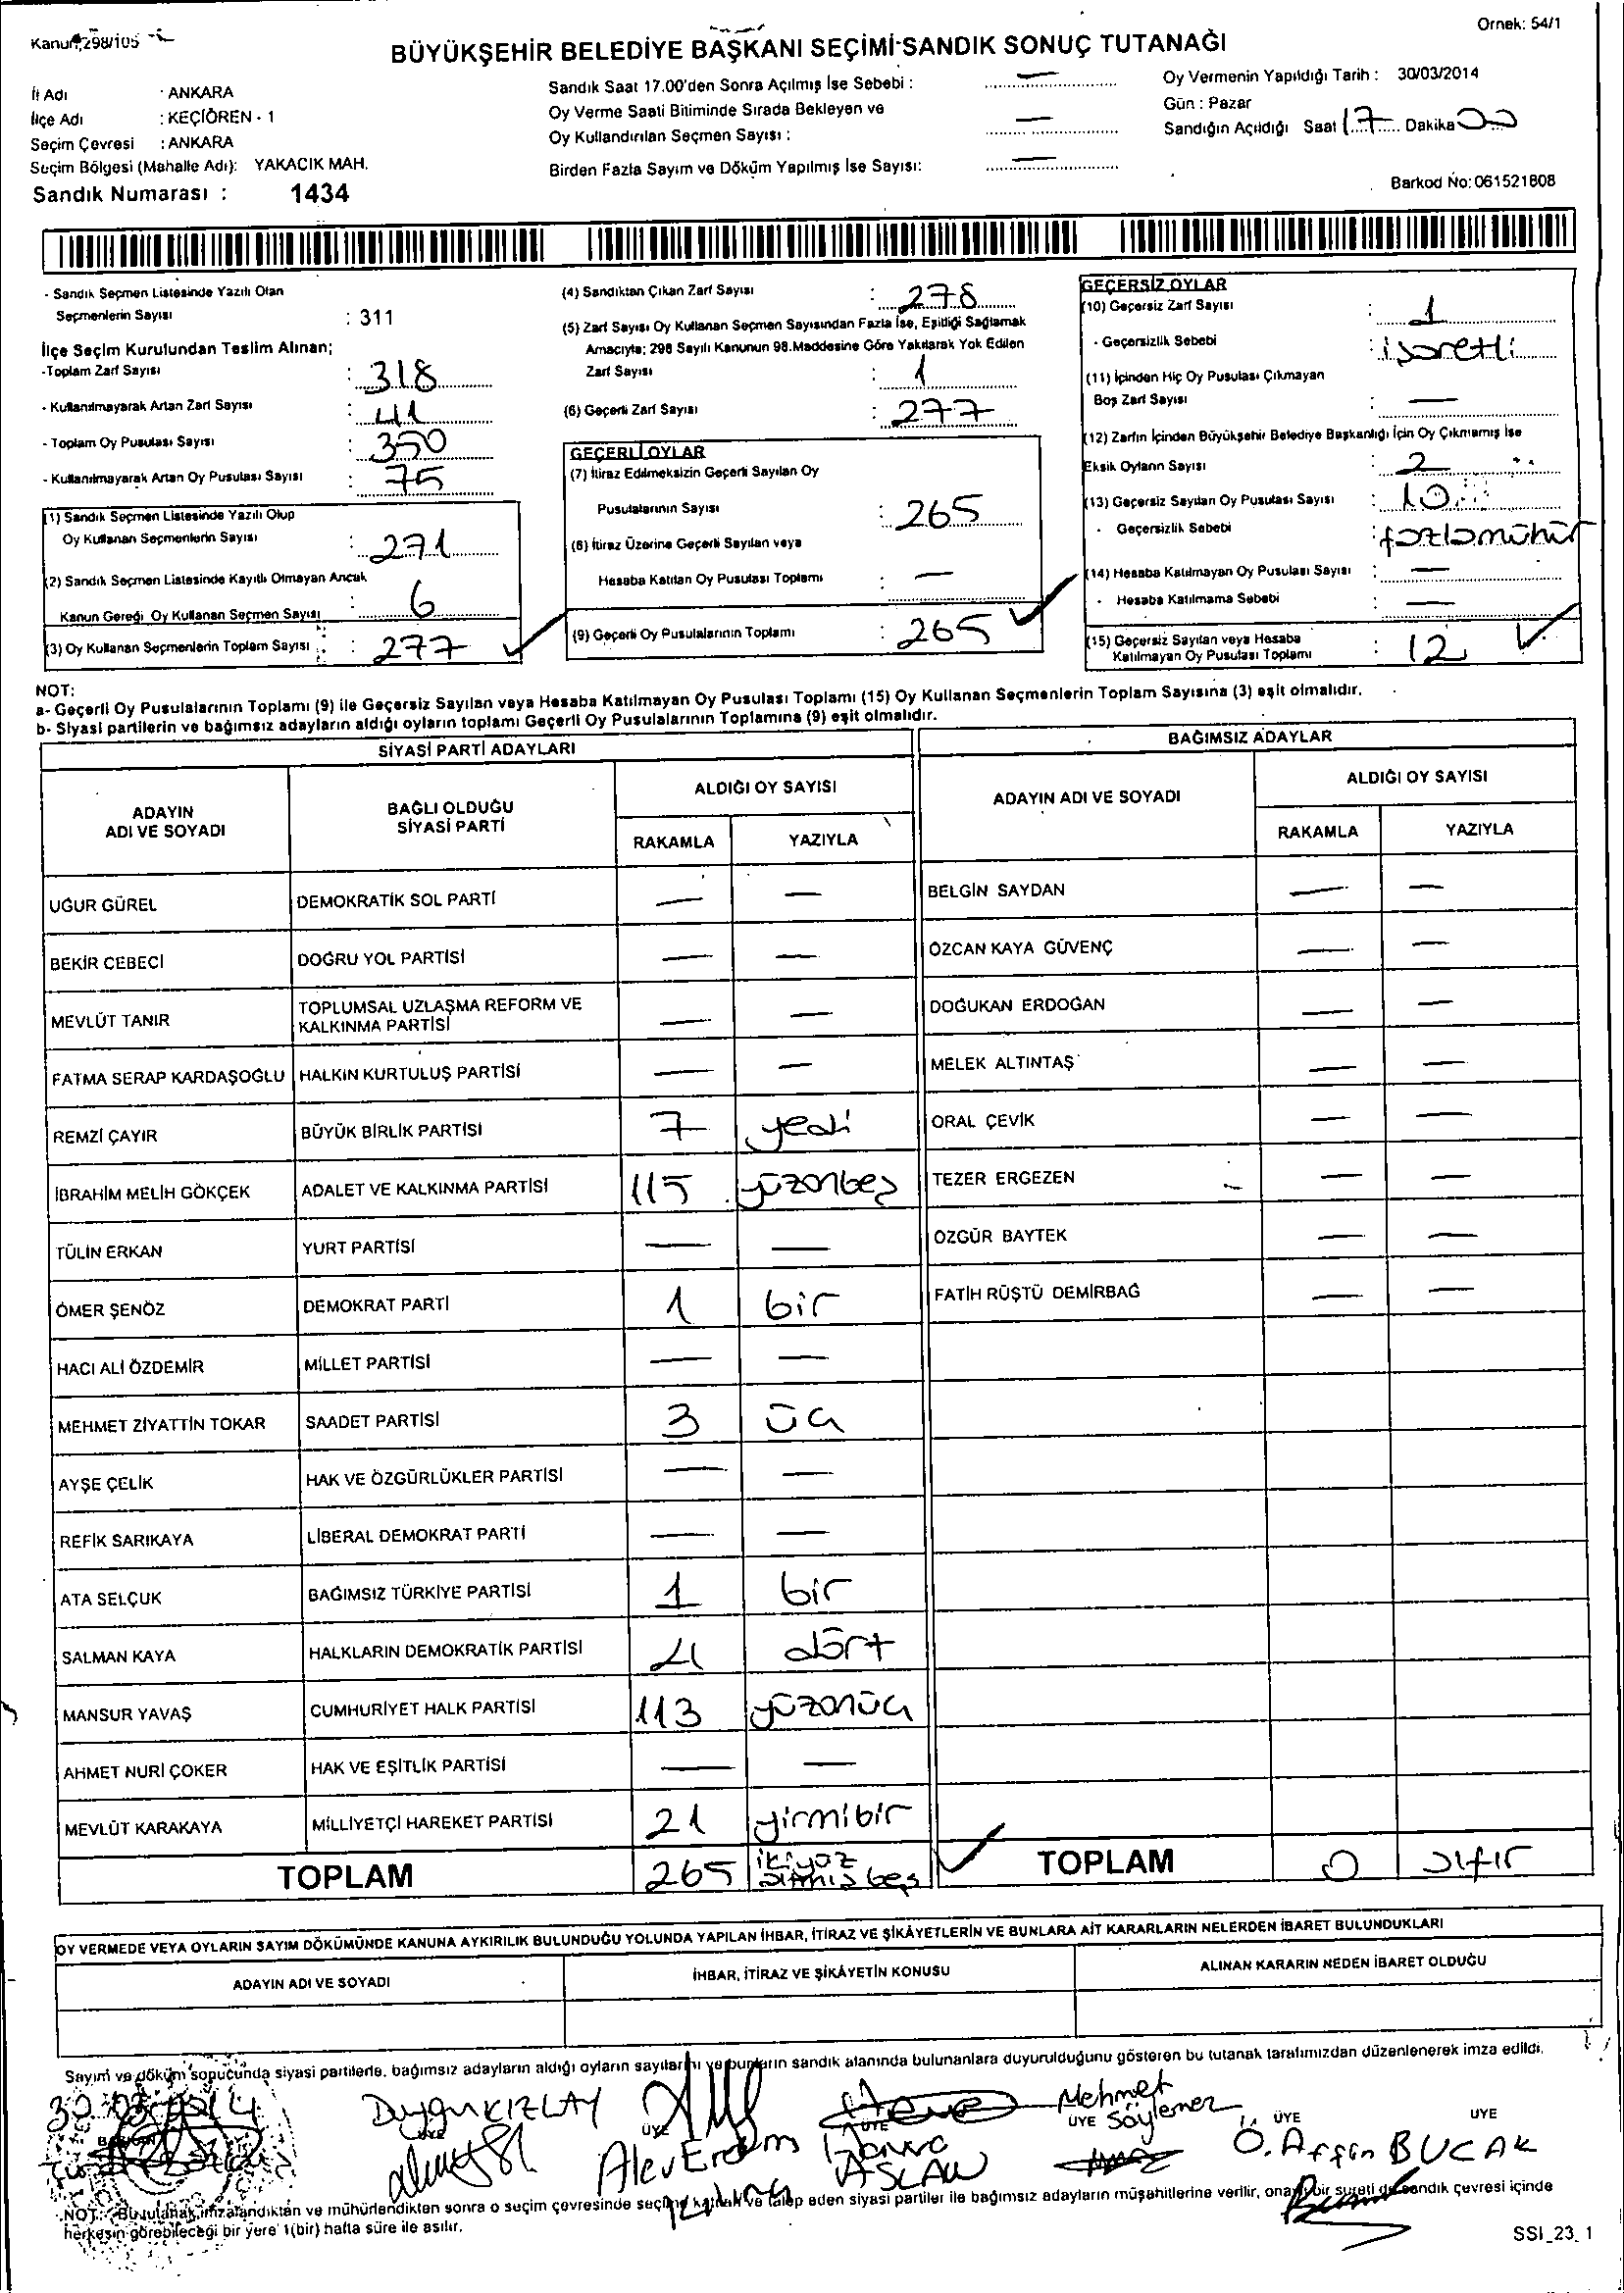 Kanun,298/105
Örnek: 54/1
BÜYÜKŞEHİR BELEDİYE BAŞKANI SEÇİMİ SANDIK SONUÇ TUTANAĞI
İl Adı : ANKARA
İlçe Adı : KEÇİÖREN - 1
Seçim Çevresi : ANKARA
Seçim Bölgesi (Mahalle Adı): YAKACIK MAH.
Sandık Numarası : 1434
Sandık Saat 17.00'den Sonra Açılmış İse Sebebi : —
Oy Verme Saati Bitiminde Sırada Bekleyen ve
Oy Kullandırılan Seçmen Sayısı : —
Birden Fazla Sayım ve Döküm Yapılmış İse Sayısı: —
Oy Vermenin Yapıldığı Tarih : 30/03/2014
Gün : Pazar
Sandığın Açıldığı Saat 17 Dakika 00
Barkod No: 061521808
- Sandık Seçmen Listesinde Yazılı Olan
Seçmenlerin Sayısı : 311
İlçe Seçim Kurulundan Teslim Alınan;
-Toplam Zarf Sayısı : 318
- Kullanılmayarak Artan Zarf Sayısı : 41
- Toplam Oy Pusulası Sayısı : 350
- Kullanılmayarak Artan Oy Pusulası Sayısı : 75
(1) Sandık Seçmen Listesinde Yazılı Olup
Oy Kullanan Seçmenlerin Sayısı : 271
(2) Sandık Seçmen Listesinde Kayıtlı Olmayan Ancak
Kanun Gereği Oy Kullanan Seçmen Sayısı : 6
(3) Oy Kullanan Seçmenlerin Toplam Sayısı : 277
(4) Sandıktan Çıkan Zarf Sayısı : 278
(5) Zarf Sayısı Oy Kullanan Seçmen Sayısından Fazla İse, Eşitliği Sağlamak
Amacıyla; 298 Sayılı Kanunun 98.Maddesine Göre Yakılarak Yok Edilen
Zarf Sayısı : 1
(6) Geçerli Zarf Sayısı : 277
GEÇERLİ OYLAR
(7) İtiraz Edilmeksizin Geçerli Sayılan Oy
Pusulalarının Sayısı : 265
(8) İtiraz Üzerine Geçerli Sayılan veya
Hesaba Katılan Oy Pusulası Toplamı : —
(9) Geçerli Oy Pusulalarının Toplamı : 265
GEÇERSİZ OYLAR
(10) Geçersiz Zarf Sayısı : 1
- Geçersizlik Sebebi : işaretli
(11) İçinden Hiç Oy Pusulası Çıkmayan
Boş Zarf Sayısı : —
(12) Zarfın İçinden Büyükşehir Belediye Başkanlığı İçin Oy Çıkmamış İse
Eksik Oyların Sayısı : 2
(13) Geçersiz Sayılan Oy Pusulası Sayısı : 10
- Geçersizlik Sebebi : fazla mühür
(14) Hesaba Katılmayan Oy Pusulası Sayısı : —
- Hesaba Katılmama Sebebi : —
(15) Geçersiz Sayılan veya Hesaba
Katılmayan Oy Pusulası Toplamı : 12
NOT:
a- Geçerli Oy Pusulalarının Toplamı (9) ile Geçersiz Sayılan veya Hesaba Katılmayan Oy Pusulası Toplamı (15) Oy Kullanan Seçmenlerin Toplam Sayısına (3) eşit olmalıdır.
b- Siyasi partilerin ve bağımsız adayların aldığı oyların toplamı Geçerli Oy Pusulalarının Toplamına (9) eşit olmalıdır.
SİYASİ PARTİ ADAYLARI
ADAYIN ADI VE SOYADI
BAĞLI OLDUĞU SİYASİ PARTİ
ALDIĞI OY SAYISI
RAKAMLA YAZIYLA
UĞUR GÜREL DEMOKRATİK SOL PARTİ — —
BEKİR CEBECİ DOĞRU YOL PARTİSİ — —
MEVLÜT TANIR TOPLUMSAL UZLAŞMA REFORM VE KALKINMA PARTİSİ — —
FATMA SERAP KARDAŞOĞLU HALKIN KURTULUŞ PARTİSİ — —
REMZİ ÇAYIR BÜYÜK BİRLİK PARTİSİ 7 yedi
İBRAHİM MELİH GÖKÇEK ADALET VE KALKINMA PARTİSİ 115 yüzonbeş
TÜLİN ERKAN YURT PARTİSİ — —
ÖMER ŞENÖZ DEMOKRAT PARTİ 1 bir
HACI ALİ ÖZDEMİR MİLLET PARTİSİ — —
MEHMET ZİYATTİN TOKAR SAADET PARTİSİ 3 üç
AYŞE ÇELİK HAK VE ÖZGÜRLÜKLER PARTİSİ — —
REFİK SARIKAYA LİBERAL DEMOKRAT PARTİ — —
ATA SELÇUK BAĞIMSIZ TÜRKİYE PARTİSİ 1 bir
SALMAN KAYA HALKLARIN DEMOKRATİK PARTİSİ 4 dört
MANSUR YAVAŞ CUMHURİYET HALK PARTİSİ 113 yüzonüç
AHMET NURİ ÇOKER HAK VE EŞİTLİK PARTİSİ — —
MEVLÜT KARAKAYA MİLLİYETÇİ HAREKET PARTİSİ 21 yirmibir
TOPLAM 265 ikiyüz altmış beş
BAĞIMSIZ ADAYLAR
ADAYIN ADI VE SOYADI
ALDIĞI OY SAYISI
RAKAMLA YAZIYLA
BELGİN SAYDAN — —
ÖZCAN KAYA GÜVENÇ — —
DOĞUKAN ERDOĞAN — —
MELEK ALTINTAŞ — —
ORAL ÇEVİK — —
TEZER ERGEZEN — —
ÖZGÜR BAYTEK — —
FATİH RÜŞTÜ DEMİRBAĞ — —
TOPLAM 0 sıfır
OY VERMEDE VEYA OYLARIN SAYIM DÖKÜMÜNDE KANUNA AYKIRILIK BULUNDUĞU YOLUNDA YAPILAN İHBAR, İTİRAZ VE ŞİKÂYETLERİN VE BUNLARA AİT KARARLARIN NELERDEN İBARET BULUNDUKLARI
ADAYIN ADI VE SOYADI İHBAR, İTİRAZ VE ŞİKÂYETİN KONUSU ALINAN KARARIN NEDEN İBARET OLDUĞU
Sayım ve döküm sonucunda siyasi partilerle, bağımsız adayların aldığı oyların sayılarını ve bunların sandık alanında bulunanlara duyurulduğunu gösteren bu tutanak tarafımızdan düzenlenerek imza edildi.
30.03.2014
Duygu KIZLAY
Alev Erdem
ASLAN
Mehmet Söylemez
ÜYE ÜYE ÜYE ÜYE ÜYE
Ö. Afşin BUCAK
NOT: Bu tutanak, imzalandıktan ve mühürlendikten sonra o seçim çevresinde seçime katılan ve talep eden siyasi partiler ile bağımsız adayların müşahitlerine verilir, onaylı bir sureti de sandık çevresi içinde
herkesin görebileceği bir yere 1(bir) hafta süre ile asılır.
SSI_23_1